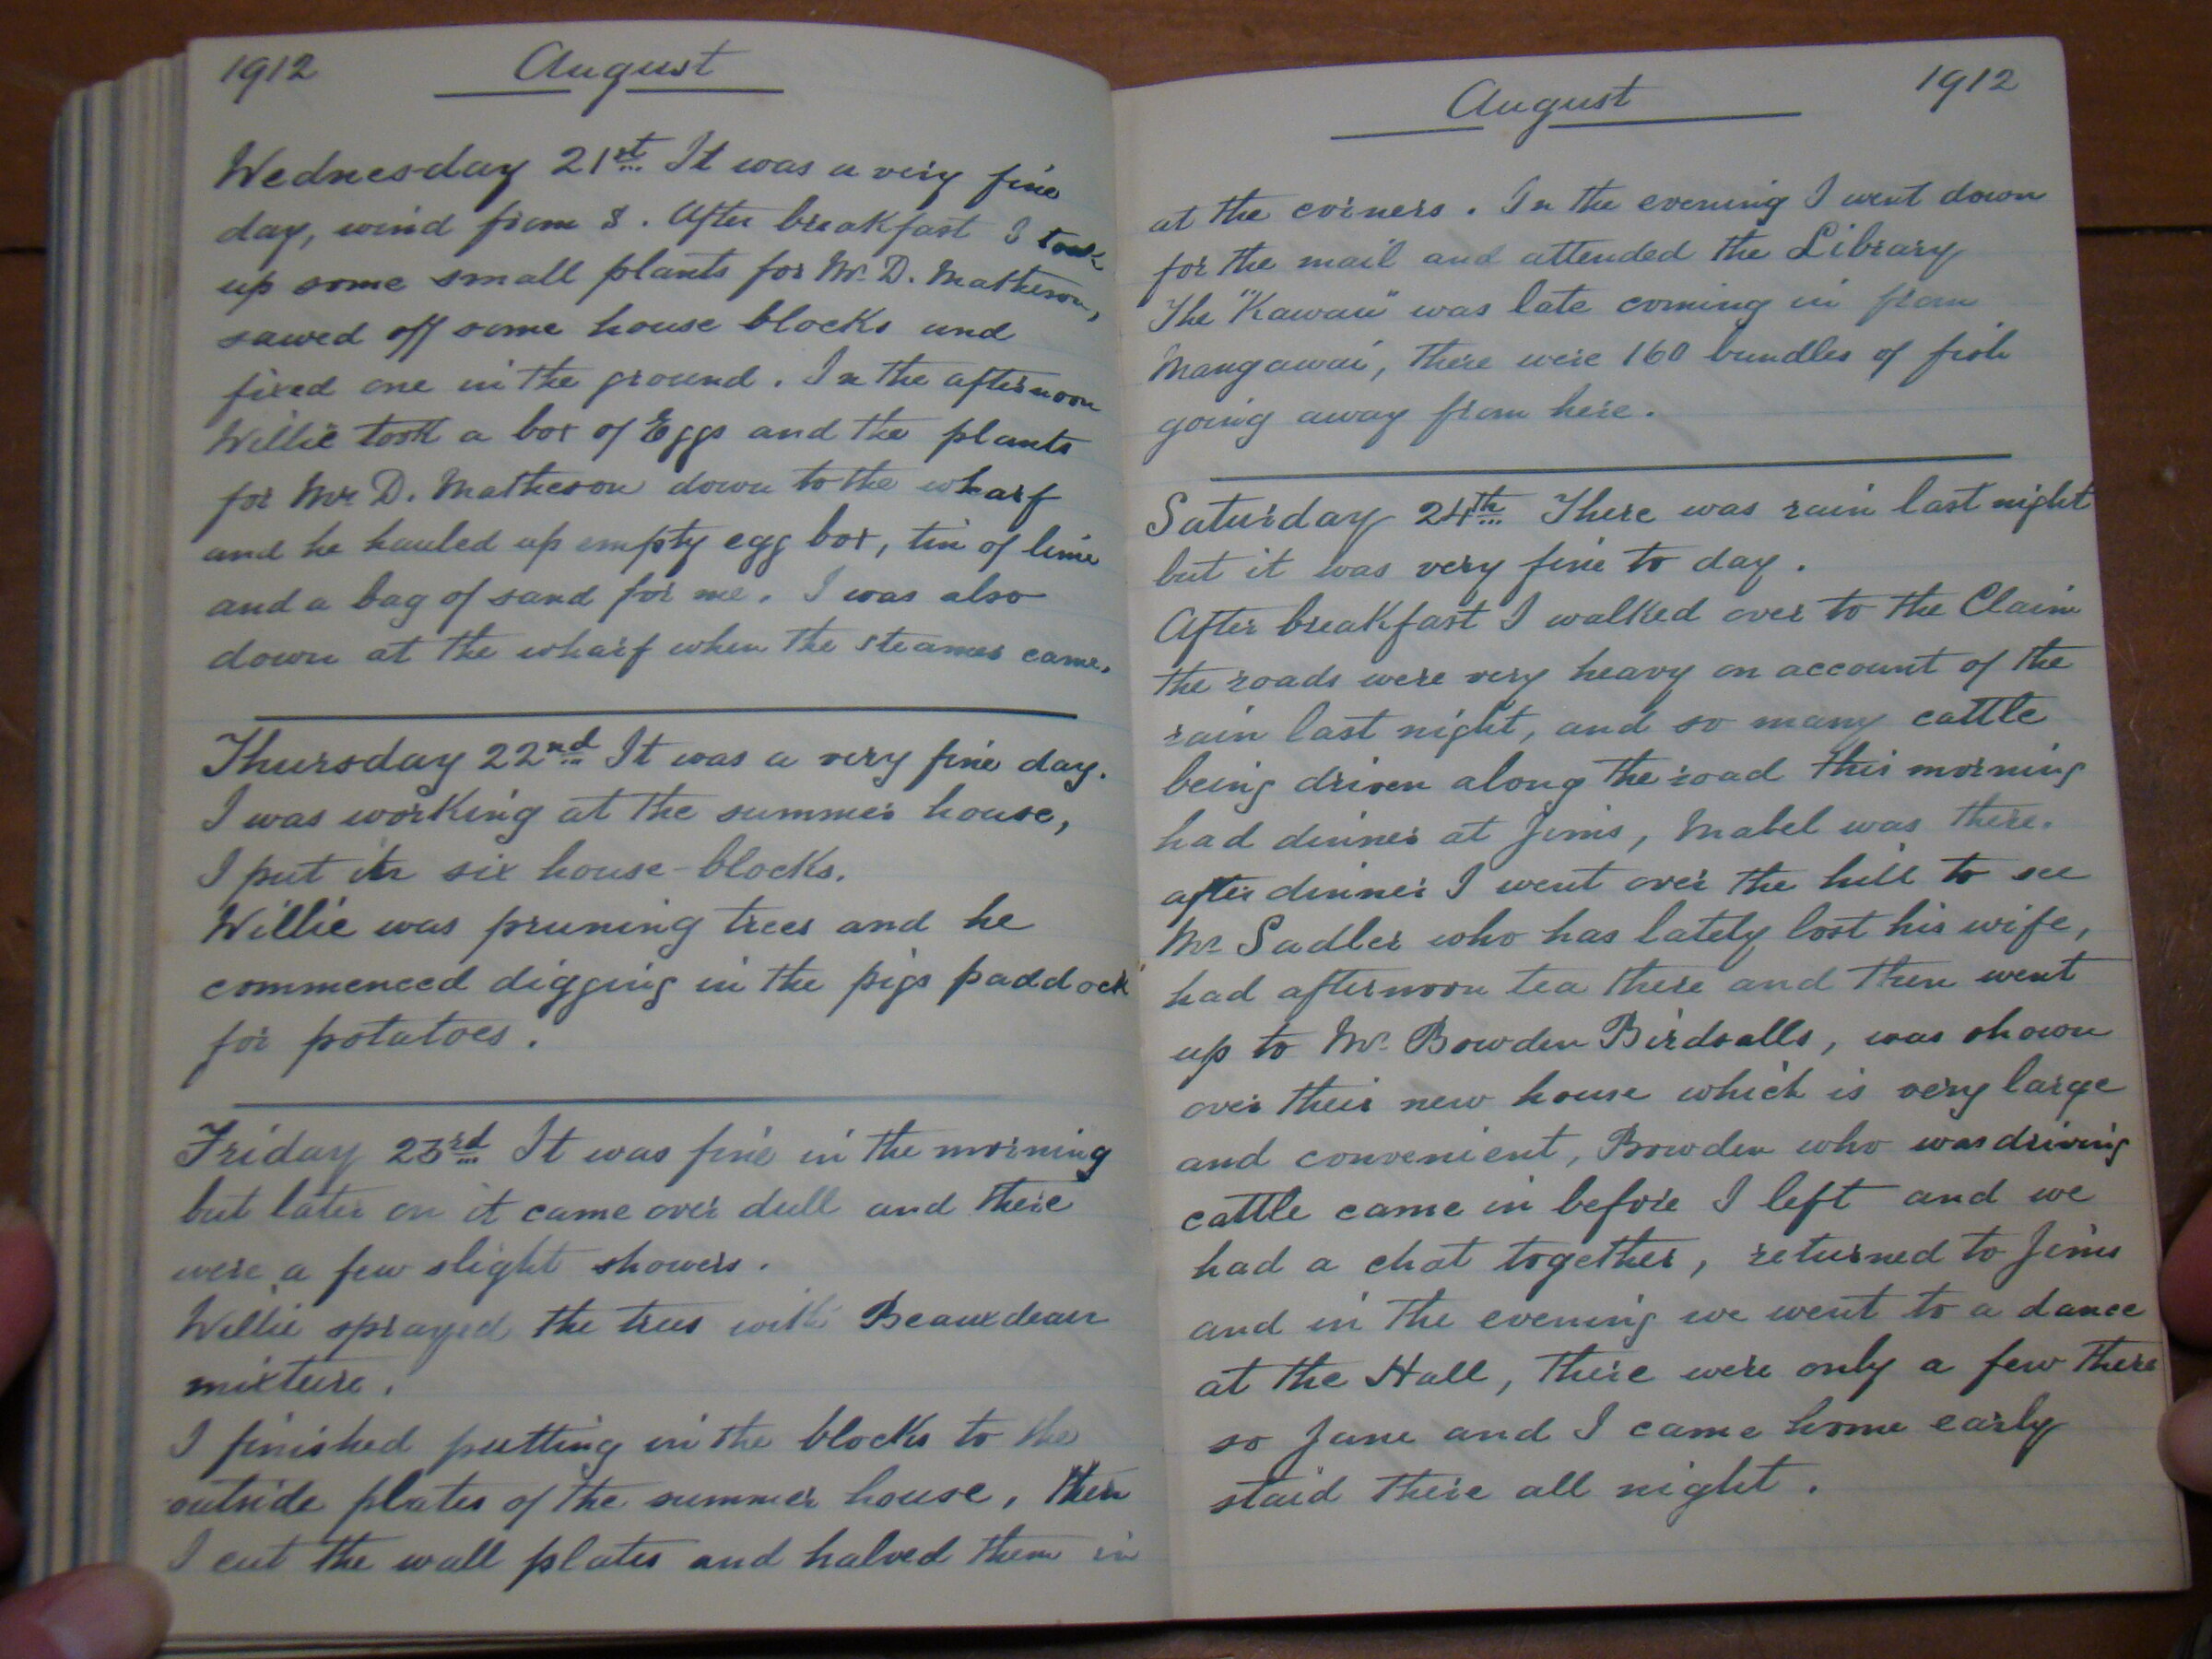 1912 August
Wednesday 21st It was a very fine
day, wind from S. After breakfast I took
up some small plants for Mr. D. Matheson,
sawed off some house blocks and
fixed one in the ground. In the afternoon
Willie took a box of Eggs and the plants
for Mr D. Matheson down to the wharf
and he hauled up empty egg box, tin of lime
and a bag of sand for me. I was also
down at the wharf when the steamer came.
Thursday 22nd It was a very fine day.
I was working at the summer house,
I put in six house-blocks.
Willie was pruning trees and he
commenced digging in the pigs paddock
for potatoes.
Friday 23rd It was fine in the morning
but later on it came over dull and there
were a few slight showers.
Willie sprayed the trees with Beauxdeaux
mixture.
I finished putting in the blocks to the
outside plates of the summer house, then
I cut the wall plates and halved them in
August 1912
at the corners. In the evening I went down
for the mail and attended the Library
The "Kawau" was late coming in from
Mangawai, there were 160 bundles of fish
going away from here.
Saturday 24th There was rain last night
but it was very fine to day.
After breakfast I walked over to the Claim
the roads were very heavy on account of the
rain last night, and so many cattle
being driven along the road this morning
had dinner at Jims, Mabel was there.
after dinner I went over the hill to see
Mr Sadler who has lately lost his wife,
had afternoon tea there and then went
up to Mr. Bowden Birdsalls, was shown
over their new house which is very large
and convenient, Bowden who was driving
cattle came in before I left and we
had a chat together, returned to Jims
and in the evening we went to a dance
at the Hall, there were only a few there
so Jane and I came home early
staid there all night.